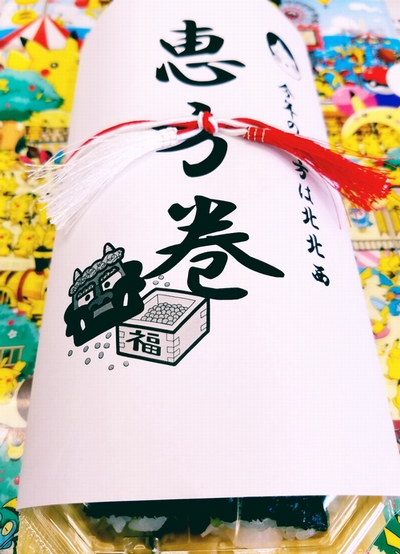 恵方巻
今年の方は北北西
福